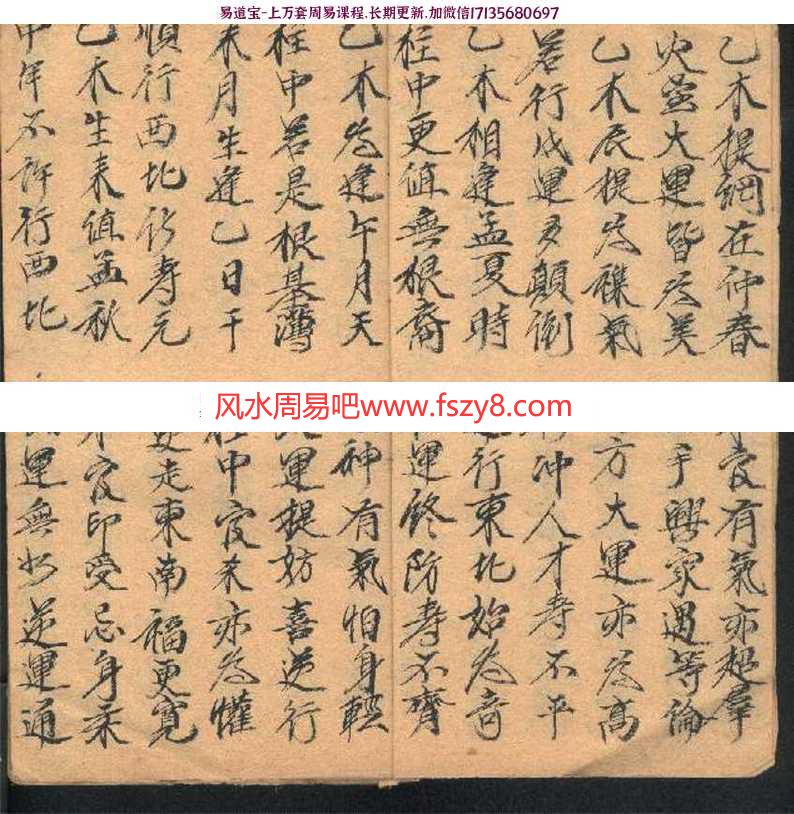 易道宝-上万套周易课程.长期更新.加微信17135680697
乙木提綱在仲春
火大運皆为美
乙木辰提为襍氣
若行戌運多顛倒
乙木相逢孟夏時
柱中更值無根裔
乙木为逢午月天
柱中若是根基薄
未月生逢乙日干
順行西北寿元
乙木生来值孟秋
中年不許行西北
风水周易吧www.fszy8.com
官有氣亦超羣
興家過等倫
方大運亦为高
冲人才寿不平
行東北始为奇
運终防寿不齊
神有氣怕身輕
運提妨喜逆行
中官杀亦为懽
走東南福更寬
官印受忌身柔
運無如逆運通